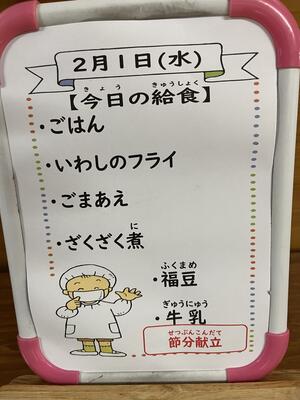 2月1日(水)
きょう きゅうしょく
【今日の給食】
・ごはん
・いわしのフライ
・ごまあえ
に
・ざくざく煮
ふくまめ
・福豆
ぎゅうにゅう
・牛乳
せつぶんこんだて
節分献立